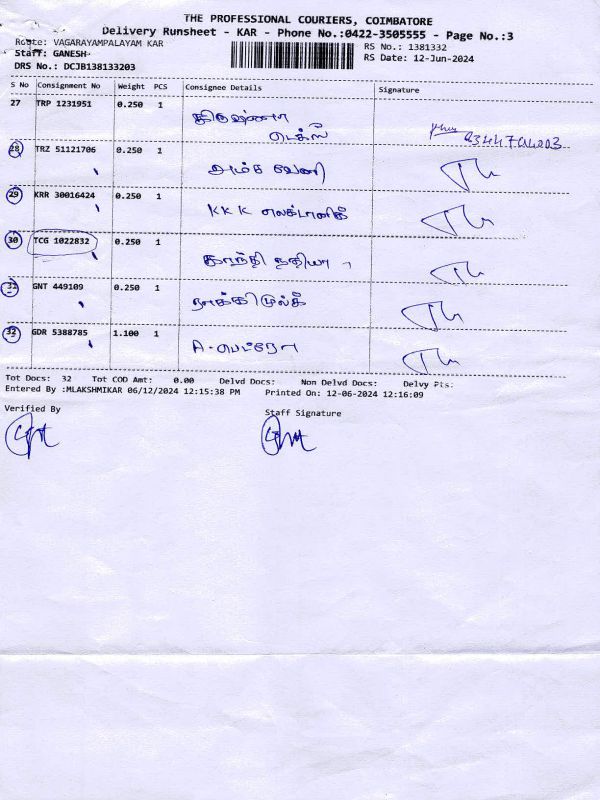 THE PROFESSIONAL COURIERS, COIMBATORE
Delivery Runsheet - KAR - Phone No.:0422-3505555 - Page No.:3
Route: VAGARAYAMPALAYAM KAR
Staff: GANESH
DRS No.: DCJB138133203
RS No.: 1381332
RS Date: 12-Jun-2024
S No Consignment No Weight PCS Consignee Details Signature
27 TRP 1231951 0.250 1
டெக்ஸ்
28 TRZ 51121706 0.250 1
29 KRR 30016424 0.250 1 KKK
30 TCG 1022832 0.250 1 காந்தி
31 GNT 449109 0.250 1
32 GDR 5388785 1.100 1 A-
Tot Docs: 32 Tot COD Amt: 0.00 Delvd Docs: Non Delvd Docs: Delvy Pts:
Entered By :MLAKSHMIKAR 06/12/2024 12:15:38 PM Printed On: 12-06-2024 12:16:09
Verified By Staff Signature